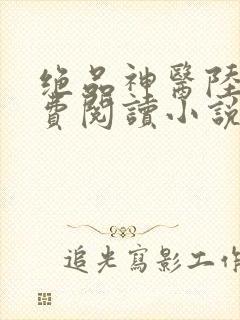 绝品神醫陸
費閱讀小說
追光寫影工作